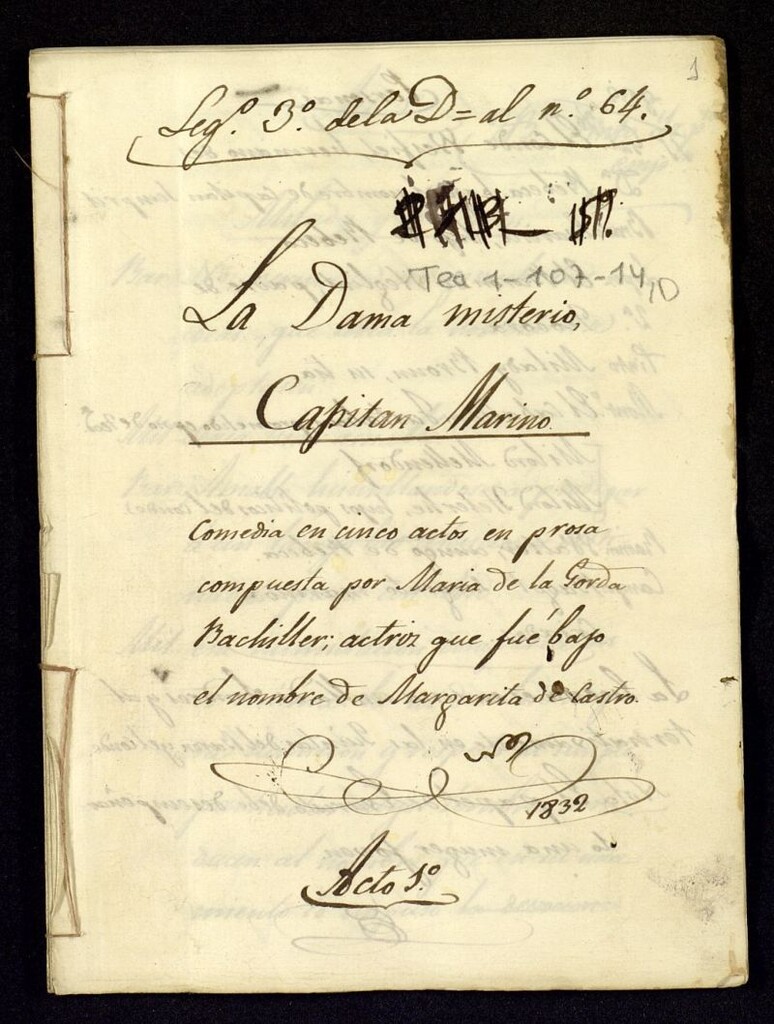 1
Legº. 3º. de la D= al nº. 64.
Tea 1-107-14, D
La Dama misterio,
Capitan Marino.
Comedia en cinco actos en prosa
compuesta por Maria de la Gorda
Bachiller; actriz que fué bajo
el nombre de Margarita de Castro.
1832
Acto 1º.